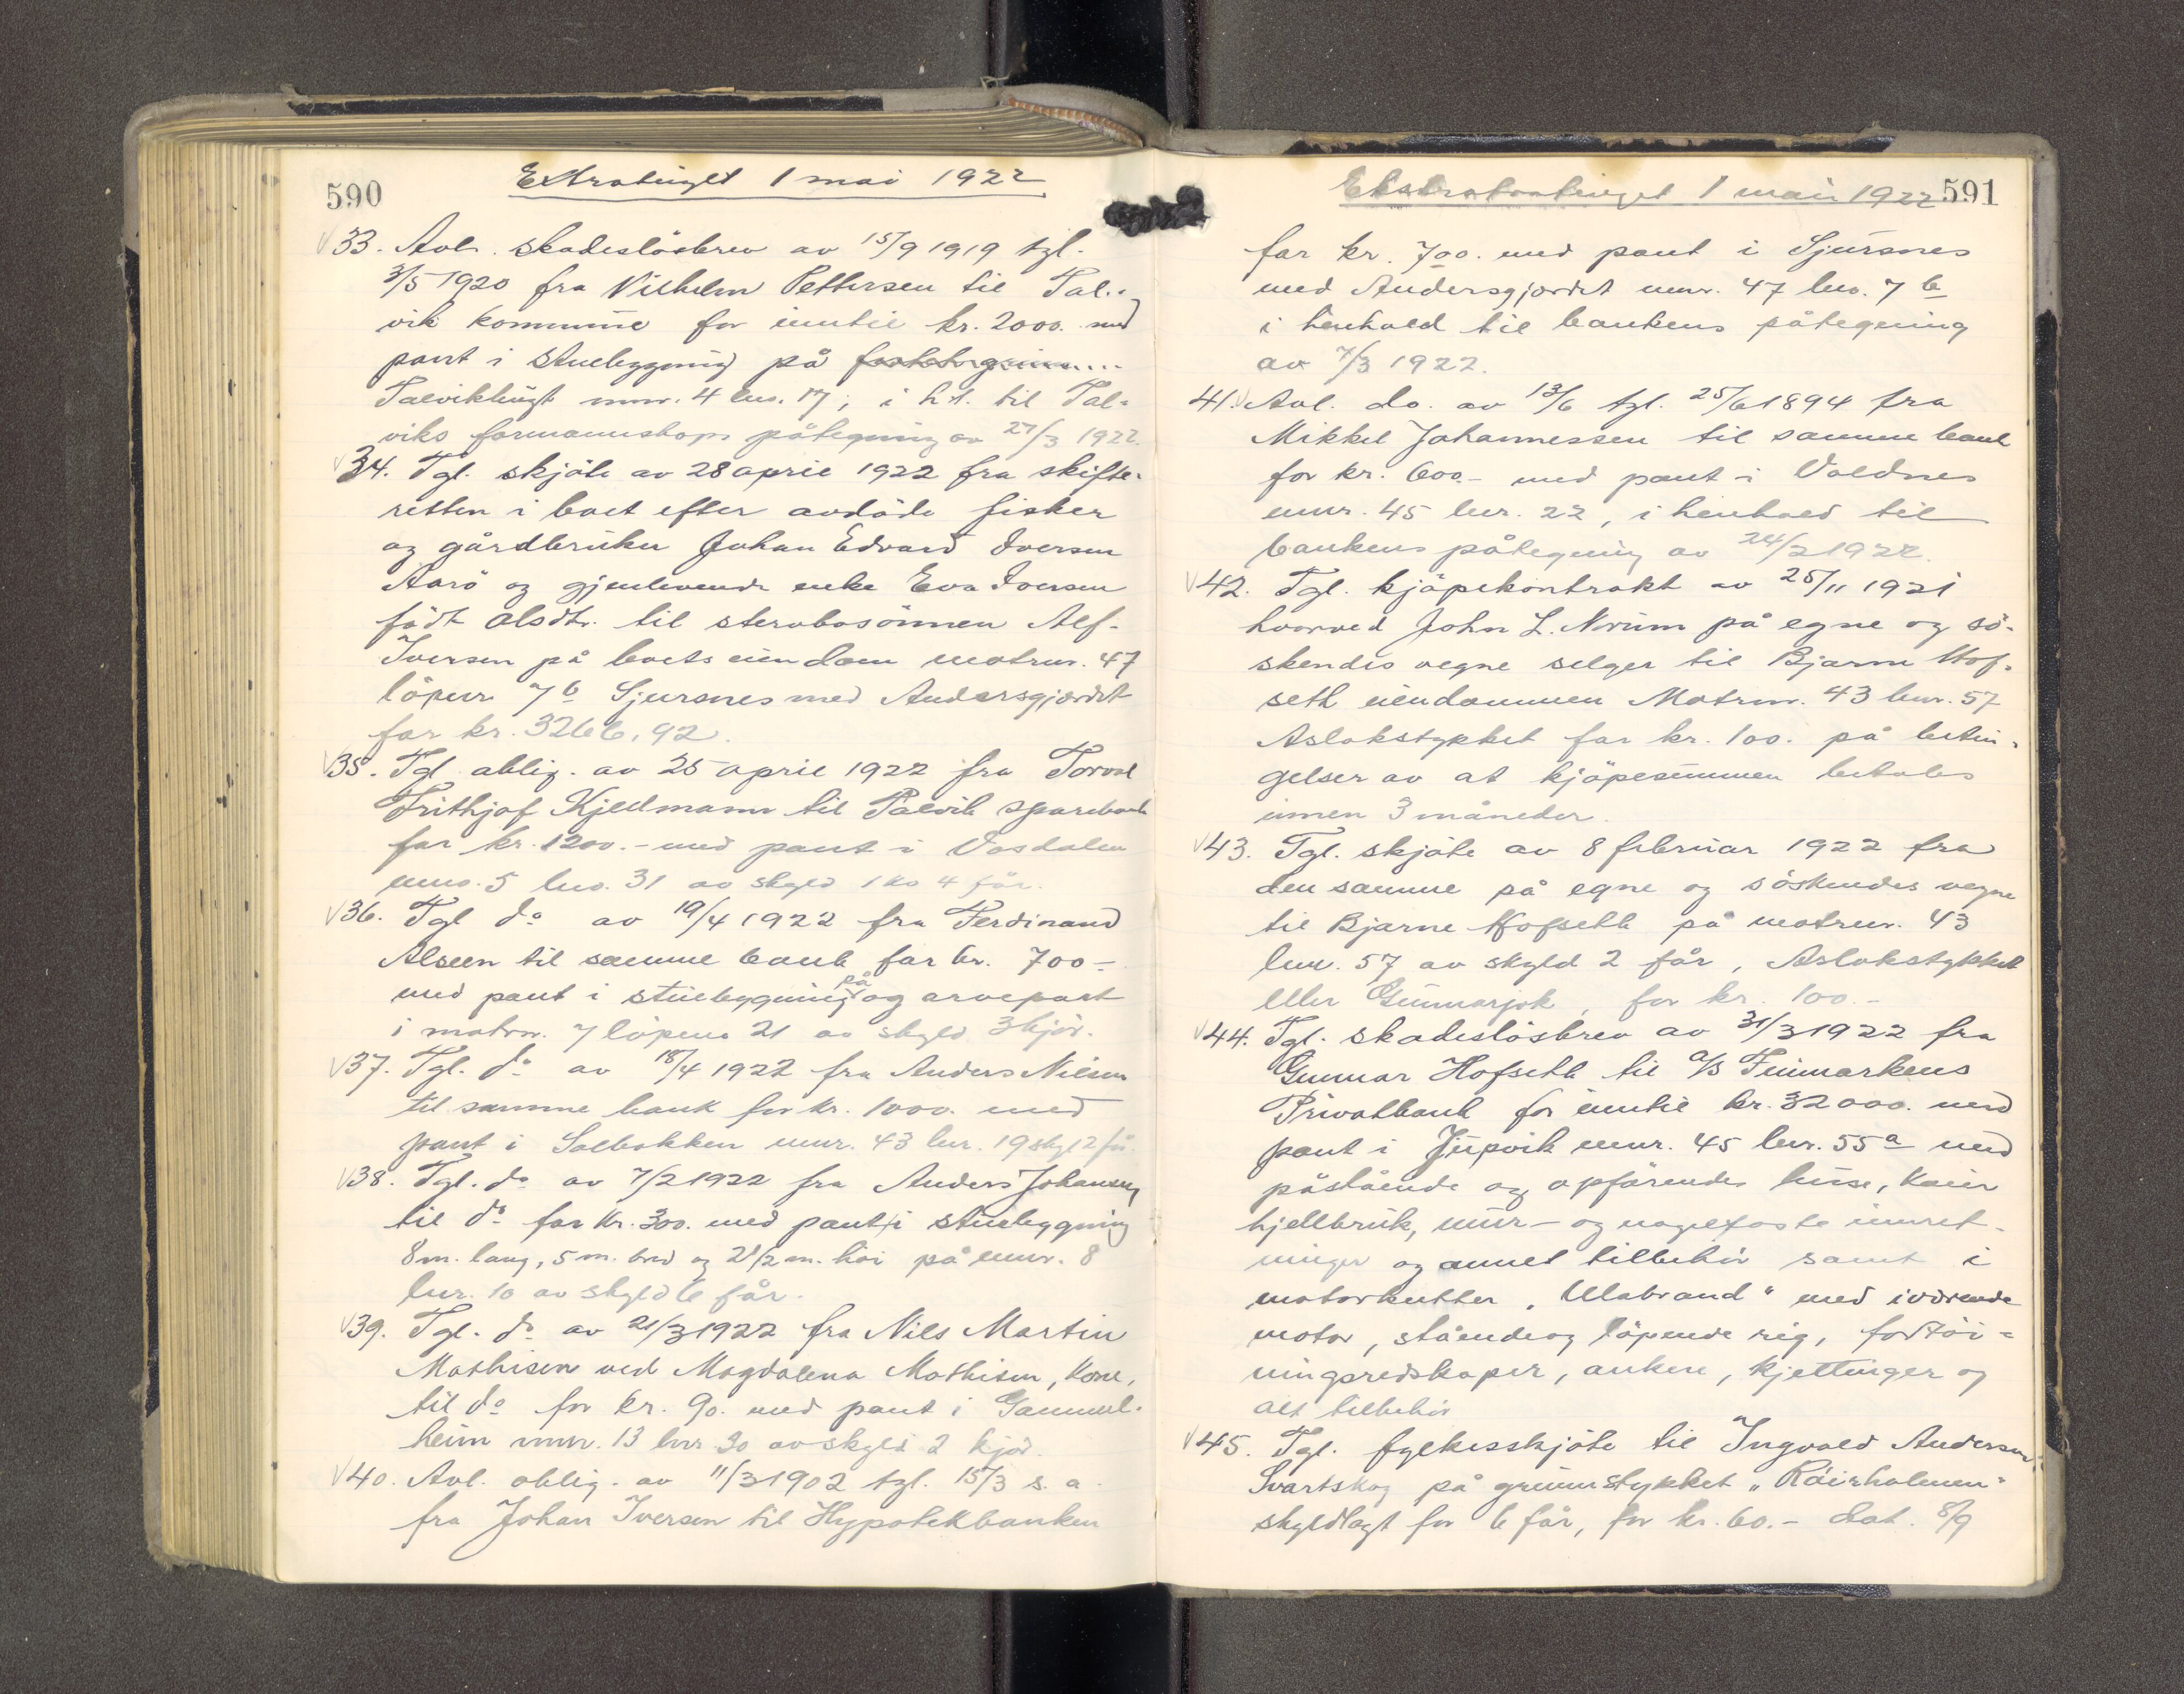 590
Extratinget 1 mai 1922
33. Avl. skadeslösbrev av 15/9 1919 tgl.
3/5 1920 fra Vilhelm Pettersen til Tal-
vik kommune for inntil kr. 2000. med
pant i stuebygning på
Talviklingt mnr. 4 lnr. 17, i h.t. til Tal-
viks formannskaps påtegning av 27/3 1922.
34. Tgl. skjöte av 28 april 1922 fra skifte-
retten i boet efter avdöde fisker
og gårdbruker Johan Edvard Iversen
Aarö og gjenlevende enke Eva Iversen
födt Olsdtr. til stervbosönnen Alf
Iversen på boets eiendom matrnr. 47
löpenr 7 b Sjursnes med Andersgjærdet
for kr. 3266,92.
35. Tgl. oblig. av 25 april 1922 fra Torval
Frithjof Kjeldmann til Talvik sparebank
for kr. 1200.- med pant i Vasdalen
mnr. 5 lnr. 31 av skyld 1 ko 4 får.
36. Tgl do av 19/4 1922 fra Ferdinand
Alseen til samme bank for kr. 700-
med pant i stuebygning på og arvepart
i matrnr. 7 löpenr 21 av skyld 3 kjör.
37. Tgl. do av 18/4 1922 fra Anders Nilsen
til samme bank for kr. 1000. med
pant i Solbakken mnr. 43 lnr. 19 skyl 2 få.
38. Tgl. do av 7/2 1922 fra Anders Johansen
til do for kr. 300. med pant i stuebygning
8 m. lang, 5 m. bred og 2 1/2 m. höi på mnr. 8
lnr. 10 av skyld 6 får.
39. Tgl. do av 21/3 1922 fra Nils Martin
Mathisen ved Magdalena Mathisen, Kone,
til do for kr. 90. med pant i Gammel-
heim mnr. 13 lnr 30 av skyld 2 kjör.
40. Avl. oblig. av 11/3 1902 tgl. 15/3 s. a.
fra Johan Iversen til Hypotekbanken
591
Ekstratinget 1 mai 1922
for kr. 700. med pant i Sjursnes
med Andersgjærdet mnr. 47 lnr. 7 b
i henhold til bankens påtegning
av 7/3 1922.
41. Avl. do. av 13/6 tgl. 25/6 1894 fra
Mikkel Johannessen til samme bank
for kr. 600.- med pant i Voldnes
mnr. 45 lnr. 22, i henhold til
bankens påtegning av 24/2 1922.
42. Tgl. kjöpekontrakt av 25/11 1921
hvorved John L. Norum på egne og sö-
skendes vegne selger til Bjarne Hof-
seth eiendommen Matrnr. 43 lnr. 57
Aslakstykket for kr. 100. på betin-
gelser av at kjöpesummen betales
innen 3 måneder.
43. Tgl. skjöte av 8 februar 1922 fra
den samme på egne og söskendes vegne
til Bjarne Hofseth på matrnr. 43
lnr. 57 av skyld 2 får, Aslakstykket
eller Gunnarjok, for kr. 100.-
44. Tgl. skadeslösbrev av 31/3 1922 fra
Gunnar Hofseth til A/S Finmarkens
Privatbank for inntil kr. 32000. med
pant i Jupvik mnr. 45 lnr. 55 a med
påstående og opförendes huse, kaier
hjellbruk, mur- og nagelfaste innret-
ninger og annet tilbehör samt i
motorkutter "Ulabrand" med iværende
motor, stående og löpende rig, fortöi-
ningsredskaper, ankere, kjettinger og
alt tilbehör
45. Tgl. fylkesskjöte til Ingvald Andersen
Svartskog på grunnstykket "Råirholmen"
skyldlagt for 6 får, for kr. 60.- dat. 8/9